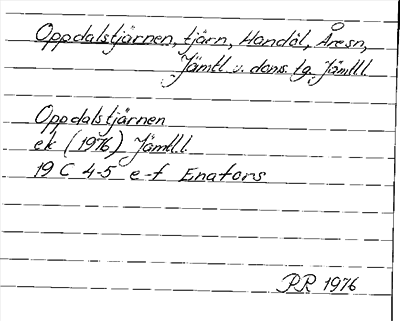 Oppdalstjärnen, tjärn, Handöl, Åresn,
Jämtl v. doms. lg. Jämtl.l.
Oppdalstjärnen
ek (1976) Jämtl.l.
19 C 4-5 e-f Enafors
RR 1976